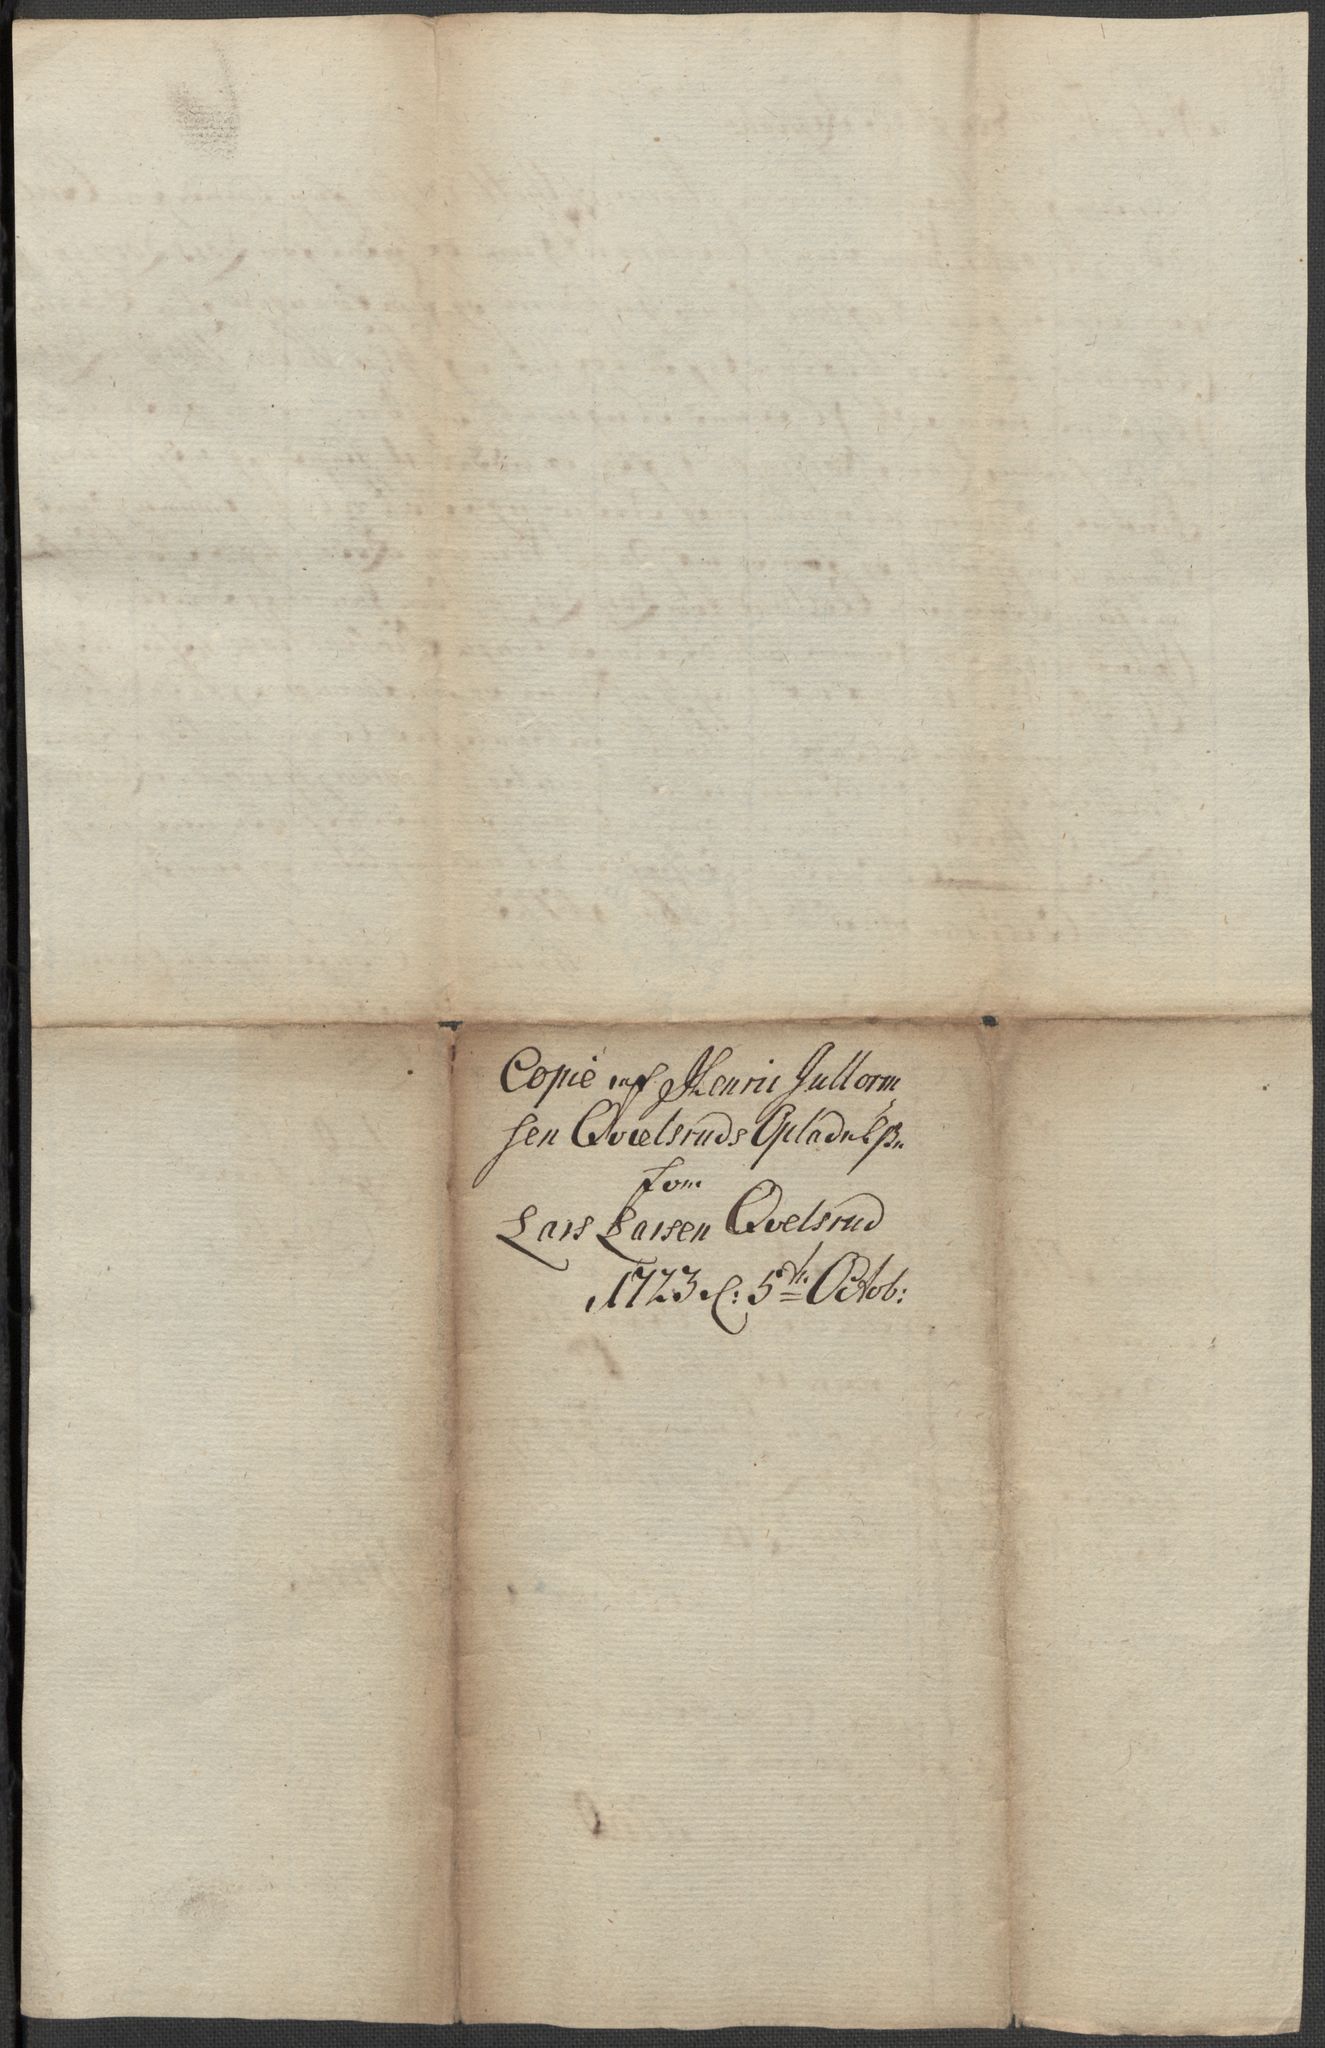 Copie af Henric Guttorm
sen Qvelsruds Opladelße
fom
Lars Larsen Qvelsrud
1723 d: 5te Octob: